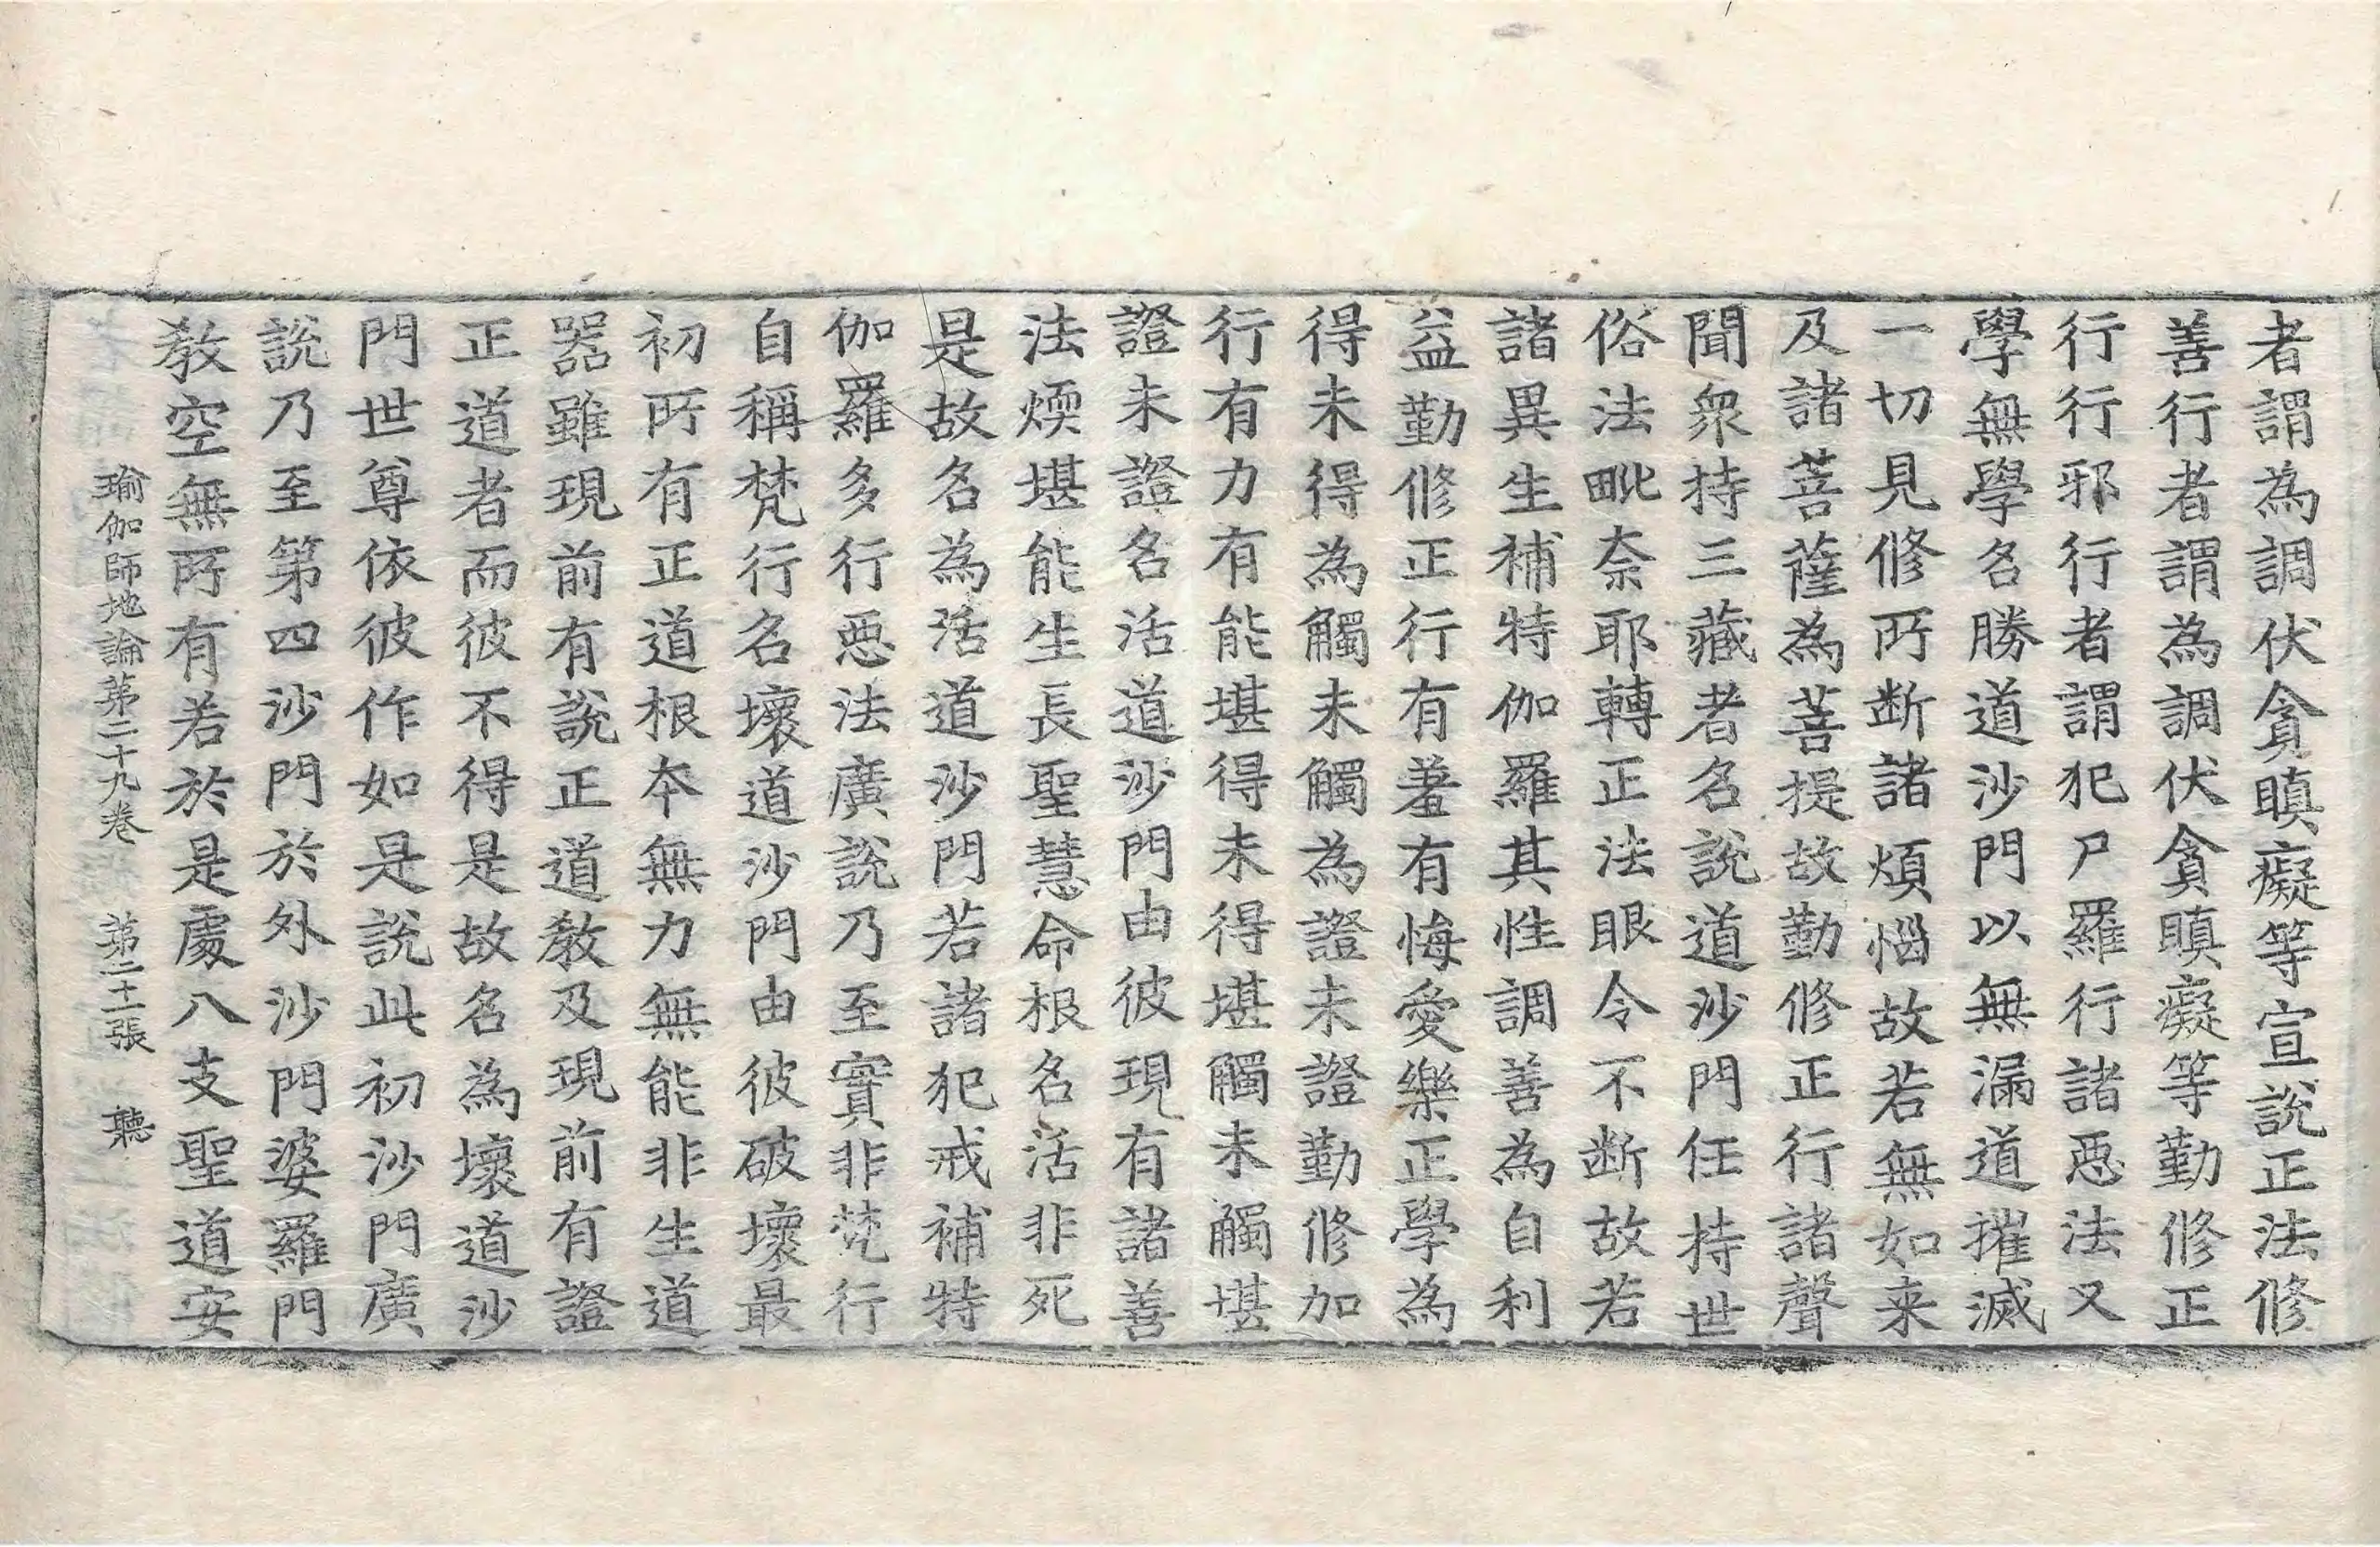 者謂為調伏貪瞋癡等宣說正法修
善行者謂為調伏貪瞋癡等勤修正
行行邪行者謂犯尸羅行諸惡法又
學無學名勝道沙門以無漏道摧滅
一切見修所断諸煩惱故若無如来
及諸菩薩為菩提故勤修正行諸聲
聞衆持三藏者名說道沙門任持世
俗法毗奈耶轉正法眼令不断故若
諸異生補特伽羅其性調善為自利
益勤修正行有羞有悔愛樂正學為
得未得為觸未觸為證未證勤修加
行有力有能堪得未得堪觸未觸堪
證未證名活道沙門由彼現有諸善
法煗堪能生長聖慧命根名活非死
是故名為活道沙門若諸犯戒補特
伽羅多行惡法廣說乃至實非梵行
自稱梵行名壞道沙門由彼破壞最
初所有正道根本無力無能非生道
器雖現前有說正道教及現前有證
正道者而彼不得是故名為壞道沙
門世尊依彼作如是說此初沙門廣
說乃至第四沙門於外沙門婆羅門
教空無所有若於是處八支聖道安
瑜伽師地論第二十九卷 第二十一張 聽